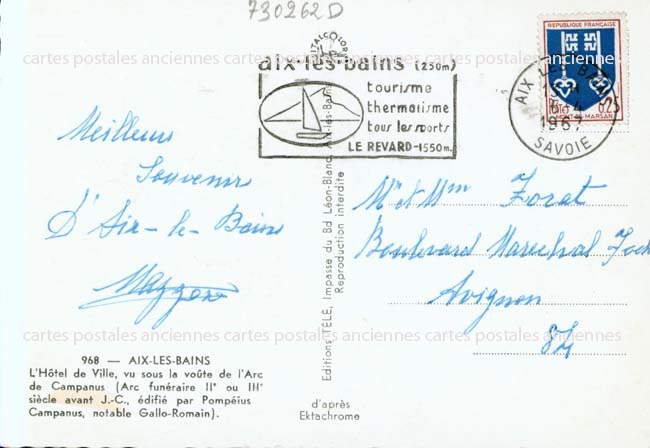 730262D
cartes postales anciennes cartes postales anciennes cartes postales anciennes
ITALCOLOR
aix-les-bains (250m)
tourisme
thermalisme
tous les sports
LE REVARD-1550m.
REPUBLIQUE FRANÇAISE
POSTES 0,25
MONT-DE-MARSAN
AIX LES BAINS
6-4
1967
SAVOIE
Meilleurs
Souvenirs
d'Aix-les-Bains
Mr et Mme Forat
Boulevard Marechal Foch
Avignon
84
cartes postales anciennes cartes postales anciennes cartes postales anciennes
Editions TÉLÉ, Impasse du Bd Léon-Blanc, Aix-les-Bains
Reproduction interdite
cartes postales anciennes cartes postales anciennes cartes postales anciennes
968 — AIX-LES-BAINS
L'Hôtel de Ville, vu sous la voûte de l'Arc
de Campanus (Arc funéraire IIe ou IIIe
siècle avant J.-C., édifié par Pompéius
Campanus, notable Gallo-Romain).
d'après
Ektachrome